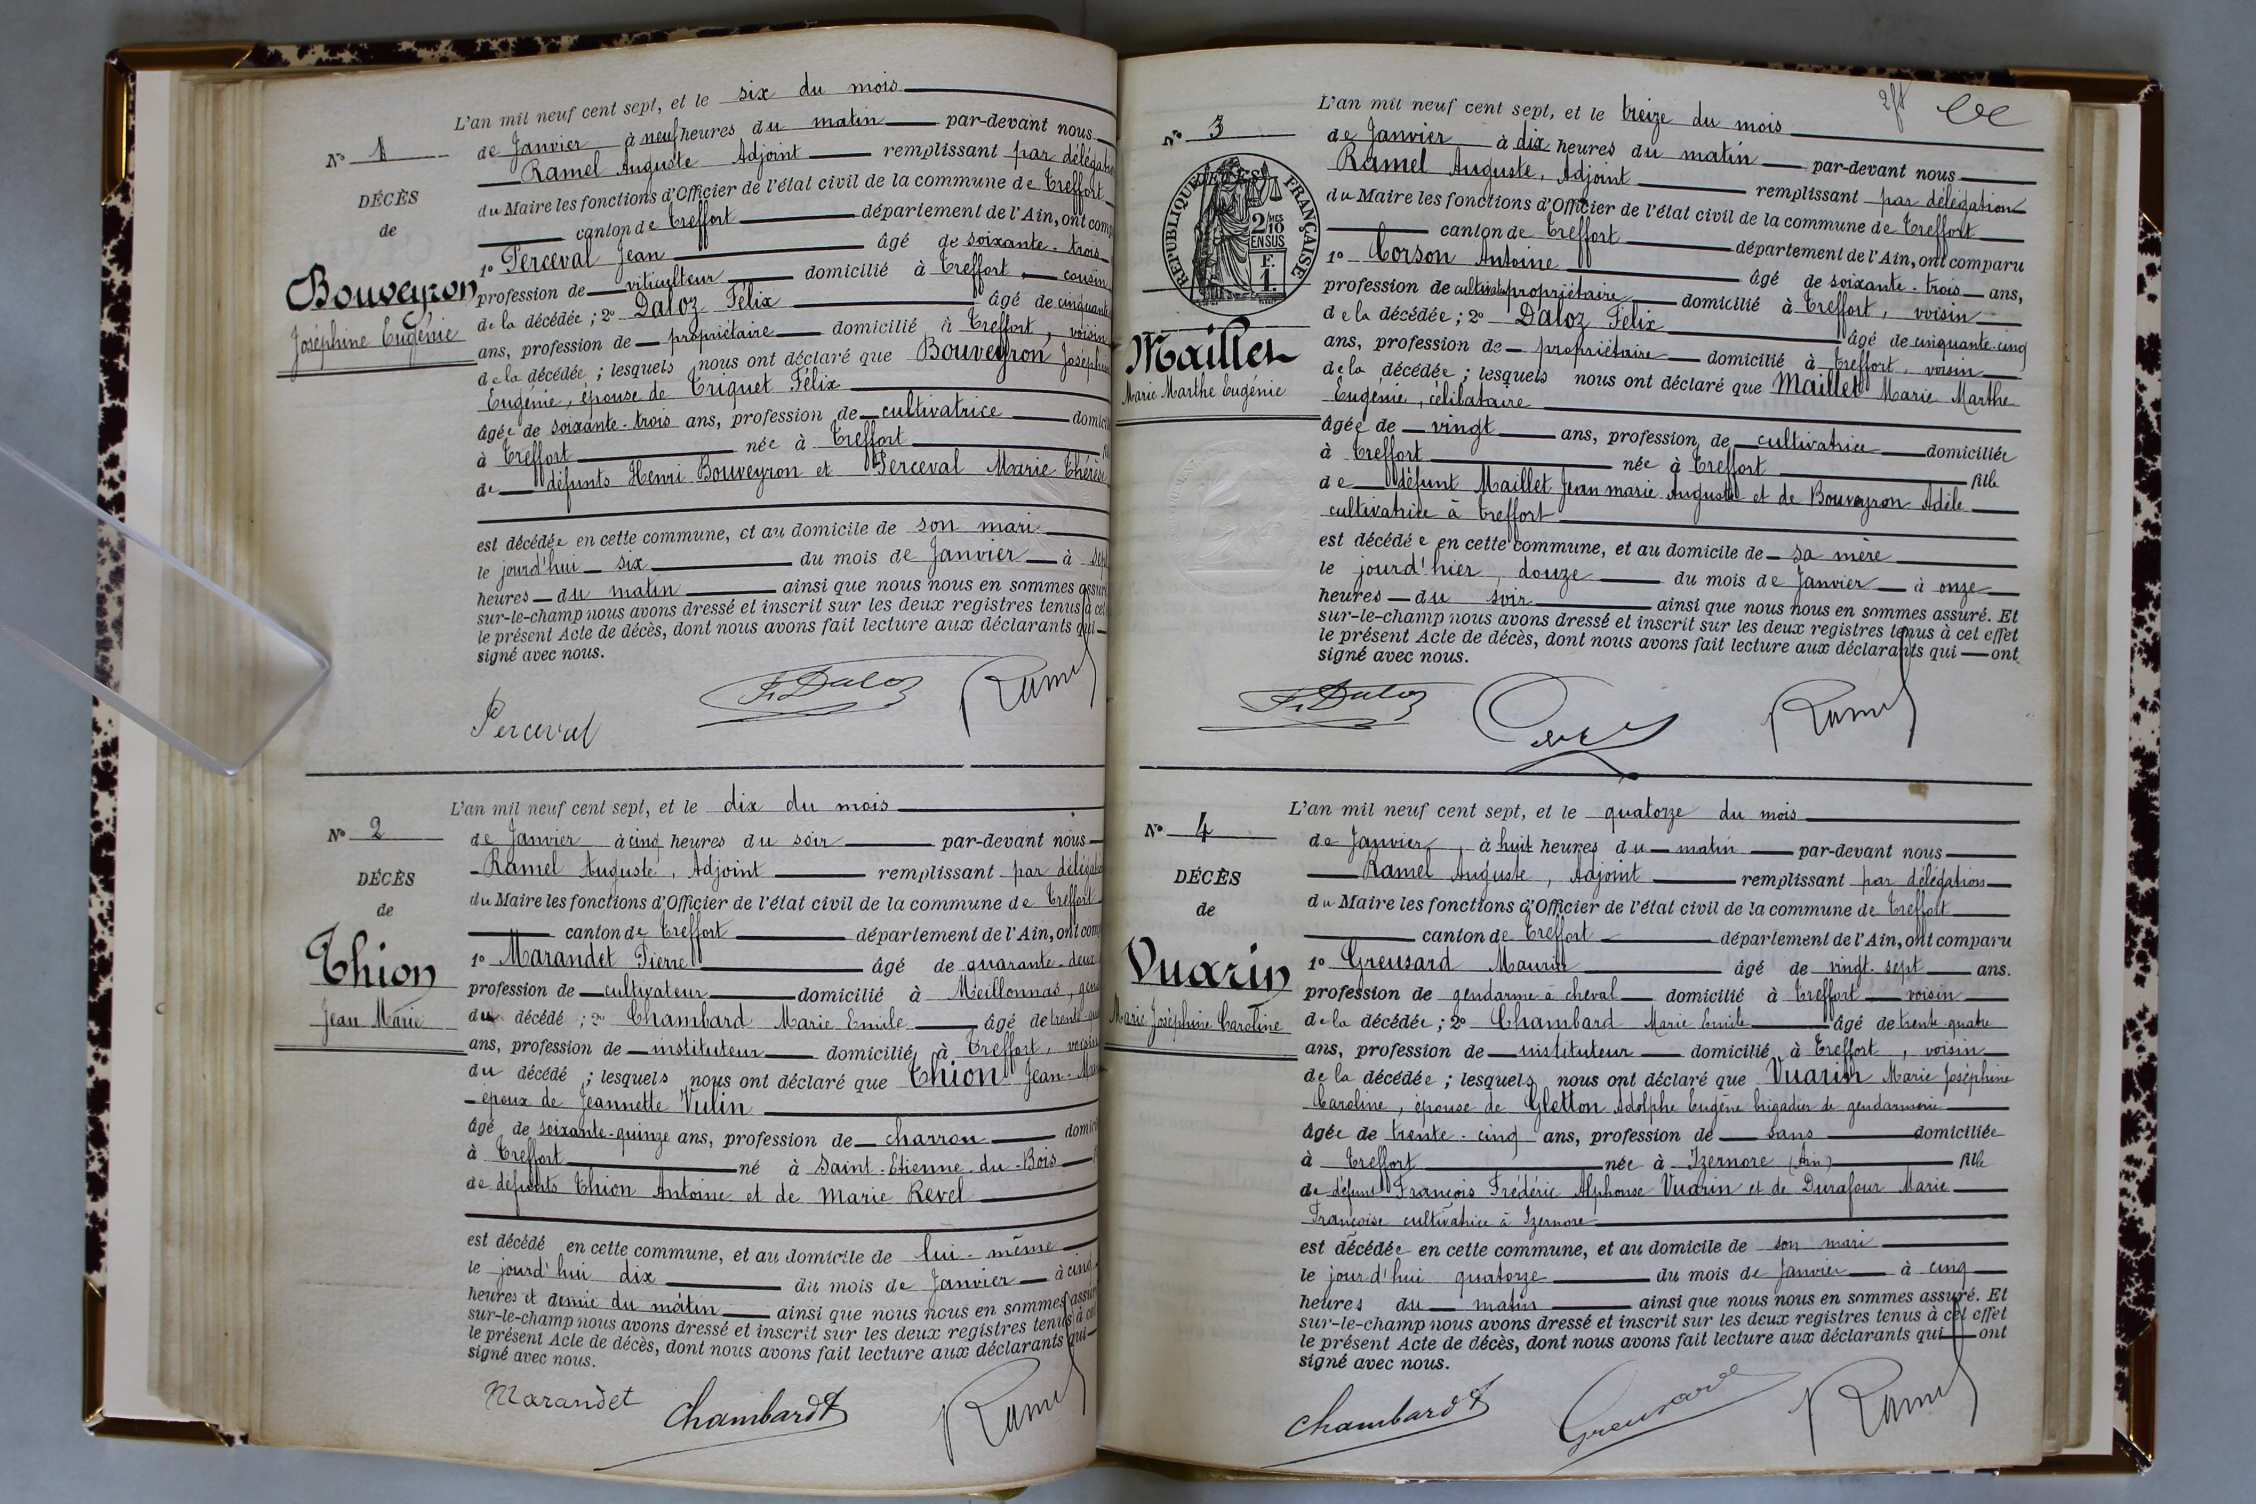 L'an mil neuf cent sept, et le six du mois
N° 1
de Janvier à neuf heures du matin par-devant nous
Ramel Auguste Adjoint remplissant par
DÉCÈS
du Maire les fonctions d'Officier de l'état civil de la commune de Treffort
de
canton de Treffort département de l'Ain, ont
1° Perceval Jean âgé de soixante-trois
Bouveyron
profession de viticulteur domicilié à Treffort, cousin
Joséphine Eugénie
de la décédée ; 2° Daloz Félix âgé de cinquante
ans, profession de propriétaire domicilié à Treffort, voisin
de la décédée ; lesquels nous ont déclaré que Bouveyron
Eugénie, épouse de Triquet Félix
âgée de soixante-trois ans, profession de cultivatrice
à Treffort née à Treffort
de défunts Henri Bouveyron et Perceval Marie Thérèse
est décédée en cette commune, et au domicile de son mari
le jourd'hui six du mois de Janvier à
heures du matin ainsi que nous nous en sommes
sur-le-champ nous avons dressé et inscrit sur les deux registres tenus à cet
le présent Acte de décès, dont nous avons fait lecture aux déclarants qui
signé avec nous.
Perceval F. Daloz Ramel
L'an mil neuf cent sept, et le dix du mois
N° 2
de Janvier à cinq heures du soir par-devant nous
Ramel Auguste, Adjoint remplissant par
DÉCÈS
du Maire les fonctions d'Officier de l'état civil de la commune de Treffort
de
canton de Treffort département de l'Ain, ont
Thion
1° Marandet Pierre âgé de quarante-deux
profession de cultivateur domicilié à Meillonnas,
Jean Marie
du décédé ; 2° Chambard Marie Emile âgé de
ans, profession de instituteur domicilié à Treffort, voisin
du décédé ; lesquels nous ont déclaré que Thion Jean-
époux de Jeannette Vulin
âgé de soixante-quinze ans, profession de charron
à Treffort né à Saint-Etienne-du-Bois
de défunts Thion Antoine et de Marie Revel
est décédé en cette commune, et au domicile de lui-même
le jourd'hui dix du mois de Janvier à cinq
heures et demie du matin ainsi que nous nous en sommes
sur-le-champ nous avons dressé et inscrit sur les deux registres tenus à
le présent Acte de décès, dont nous avons fait lecture aux déclarants qui
signé avec nous.
Marandet Chambard Ramel
L'an mil neuf cent sept, et le treize du mois
N° 3
de Janvier à dix heures du matin par-devant nous
Ramel Auguste, Adjoint remplissant par délégation
du Maire les fonctions d'Officier de l'état civil de la commune de Treffort
RÉPUBLIQUE FRANÇAISE
2/10 EN SUS
F. 1.
canton de Treffort département de l'Ain, ont comparu
1° Corson Antoine âgé de soixante-trois ans,
profession de propriétaire domicilié à Treffort, voisin
de la décédée ; 2° Daloz Félix âgé de cinquante-cinq
Maillet
ans, profession de propriétaire domicilié à Treffort, voisin
Marie Marthe Eugénie
de la décédée ; lesquels nous ont déclaré que Maillet Marie Marthe
Eugénie, célibataire
âgée de vingt ans, profession de cultivatrice domiciliée
à Treffort née à Treffort fille
de défunt Maillet Jean marie Auguste et de Bouveyron Adèle
cultivatrice à Treffort
est décédée en cette commune, et au domicile de sa mère
le jourd'hier, douze du mois de Janvier à onze
heures du soir ainsi que nous nous en sommes assuré. Et
sur-le-champ nous avons dressé et inscrit sur les deux registres tenus à cet effet
le présent Acte de décès, dont nous avons fait lecture aux déclarants qui ont
signé avec nous.
F. Daloz Ramel
L'an mil neuf cent sept, et le quatorze du mois
N° 4
de Janvier, à huit heures du matin par-devant nous
Ramel Auguste, Adjoint remplissant par délégation
DÉCÈS
du Maire les fonctions d'Officier de l'état civil de la commune de Treffort
de
canton de Treffort département de l'Ain, ont comparu
Vuarin
1° Greusard Maurice âgé de vingt-sept ans.
profession de gendarme à cheval domicilié à Treffort voisin
Marie Joséphine Caroline
de la décédée ; 2° Chambard Marie Emile âgé de trente-quatre
ans, profession de instituteur domicilié à Treffort, voisin
de la décédée ; lesquels nous ont déclaré que Vuarin Marie Joséphine
Caroline, épouse de Gletton Adolphe Eugène brigadier de gendarmerie
âgée de trente-cinq ans, profession de sans domiciliée
à Treffort née à Izernore (Ain) fille
de défunt François Frédéric Alphonse Vuarin et de Durafour Marie
Françoise cultivatrice à Izernore
est décédée en cette commune, et au domicile de son mari
le jourd'hui quatorze du mois de Janvier à cinq
heures du matin ainsi que nous nous en sommes assuré. Et
sur-le-champ nous avons dressé et inscrit sur les deux registres tenus à cet effet
le présent Acte de décès, dont nous avons fait lecture aux déclarants qui ont
signé avec nous.
Chambard Greusard Ramel